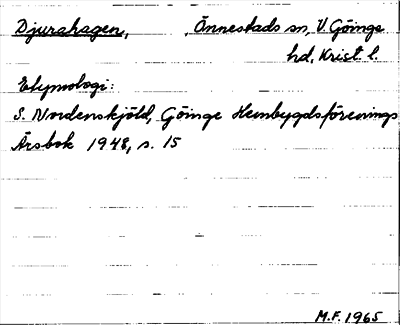 Djurahagen, Önnestads sn, V. Göinge
hd, Krist. l.
Etymologi:
S. Nordenskjöld, Göinge Hembygdsförenings
Årsbok 1948, s. 15
M.F. 1965